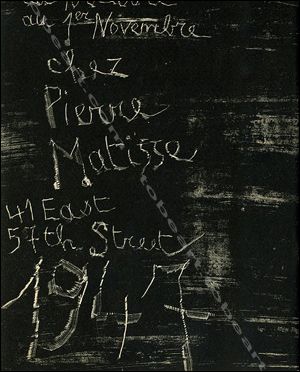 au 1er Novembre
chez
Pierre
Matisse
41 East
57th Street
1947